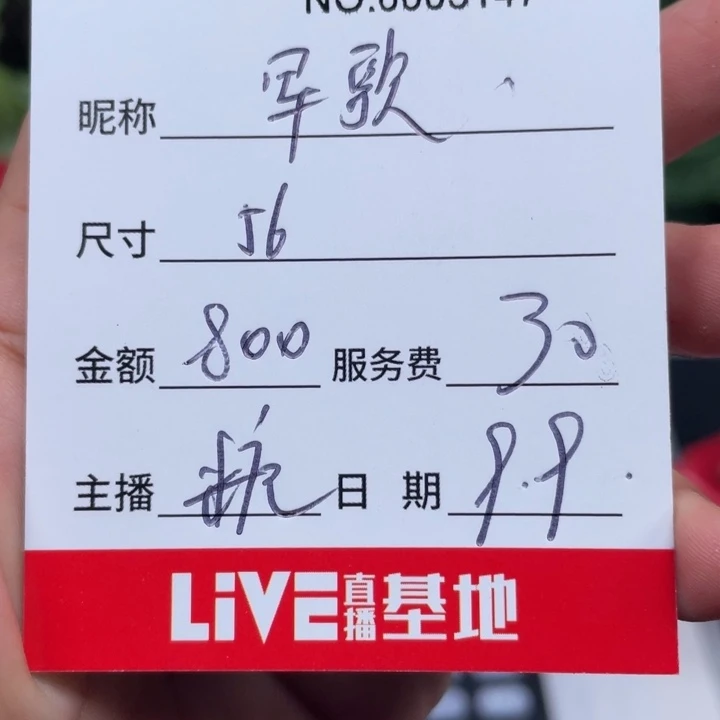 昵称 军歌
尺寸 56
金额 800 服务费 30
主播 航 日 期 9.9.
LiVE直播基地